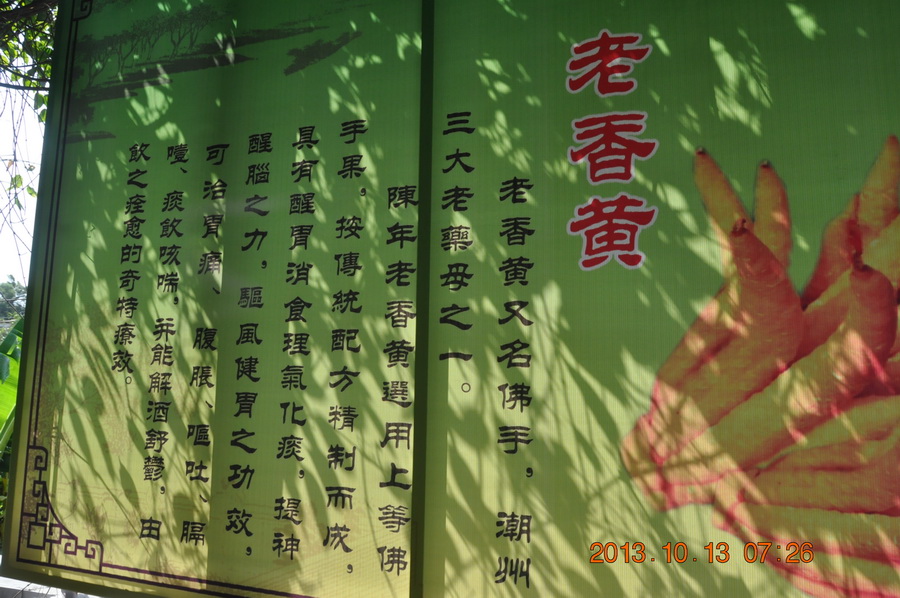 老香黄
老香黄又名佛手，潮州
三大老藥母之一。
陳年老香黄選用上等佛
手果，按傳統配方精制而成，
具有醒胃消食理氣化痰，提神
醒腦之力，驅風健胃之功效，
可治胃痛、腹脹、嘔吐、膈
噎、痰飲咳喘，并能解酒舒鬱，由
飲之痊愈的奇特療效。
2013.10.13 07:26